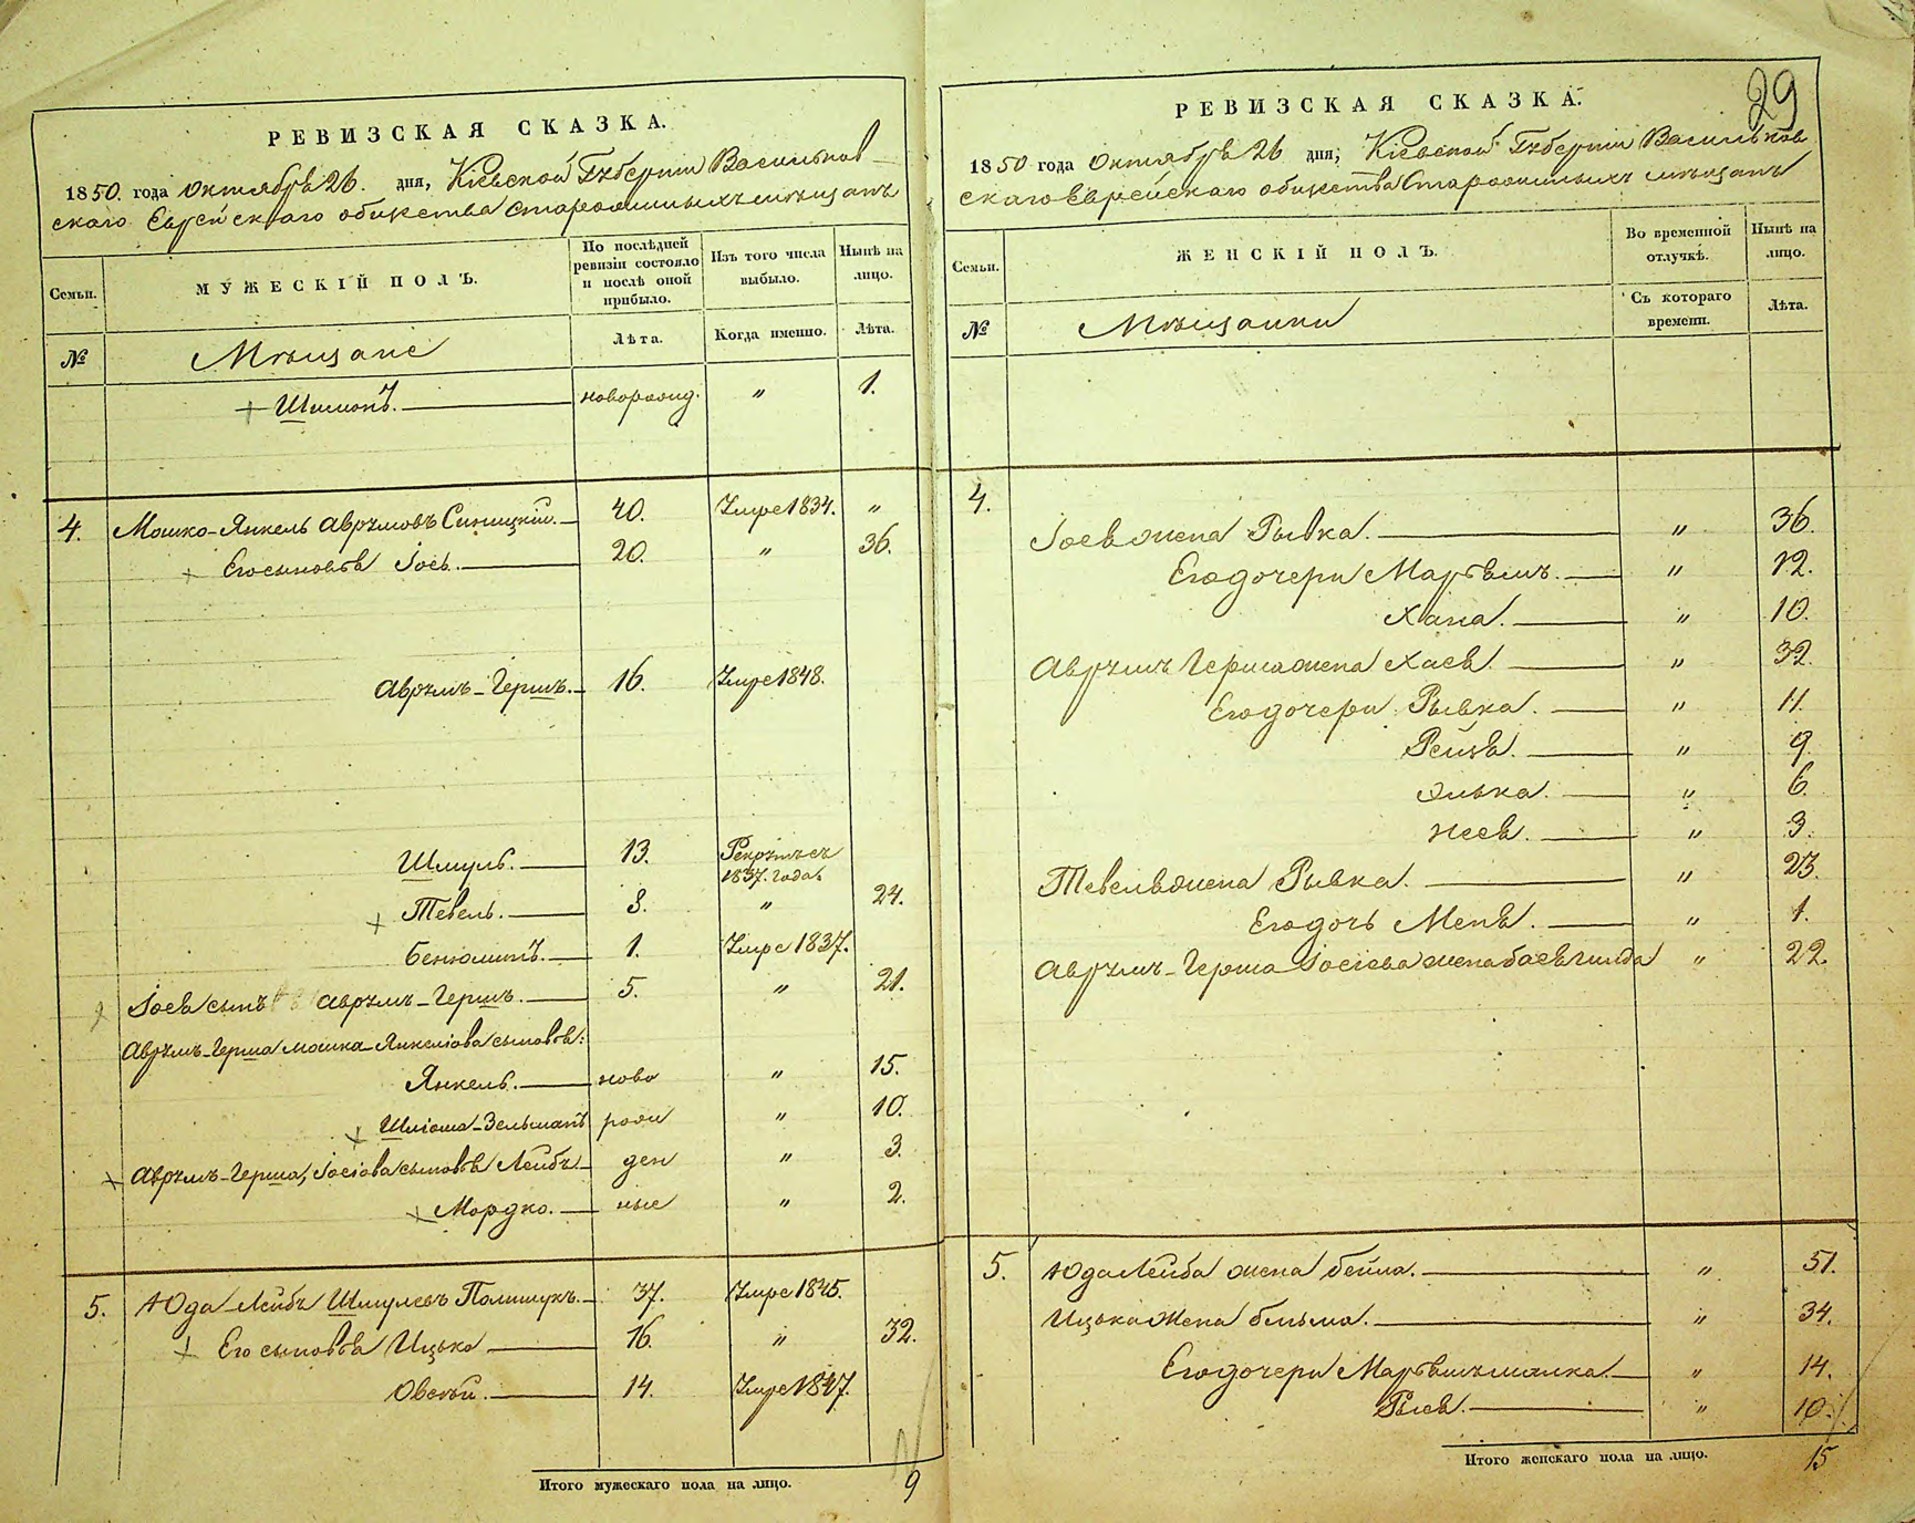 РЕВИЗСКАЯ СКАЗКА.
1850. года Октября 26. дня, Кіевской Губерніи Васильков-
скаго Еврейскаго общества Староошлыхъ мѣщанъ
Семьи.
МУЖЕСКІЙ ПОЛЪ.
По послѣдней ревизіи состояло и послѣ оной прибыло.
Изъ того числа выбыло.
Нынѣ на лицо.
№
Мѣщане
Лѣта.
Когда именно.
Лѣта.
Шимонъ. новорожд. " 1.
4. Мошко-Янкель Аврумовъ Синицкій. 40. Умре 1834. "
Его сыновья Іось. 20. " 36.
Аврумъ-Гершъ. 16. Умре 1848.
Шмуль. 13. Рекрутъ съ
1837. года.
Тевель. 8. " 24.
Бенюминъ. 1. Умре 1837.
Іося сынъ Аврумъ-Гершъ. 5. " 21.
Аврумъ-Герша Мошка-Янкеліова сыновья:
Янкель. ново " 15.
Шліома-Зельманъ рож " 10.
Аврумъ-Герша, Іосіова сыновья Лейбъ ден " 3.
Мордко. ные " 2.
5. Юда-Лейбъ Шмулевъ Полищукъ. 37. Умре 1845.
Его сыновья Ицько 16. " 32.
Овсѣй. 14. Умре 1847.
Итого мужескаго пола на лицо. 9
29
РЕВИЗСКАЯ СКАЗКА.
1850 года Октября 26 дня, Кіевской Губерніи Васильков
скаго Еврейскаго общества Староошлыхъ мѣщанъ
Семьи.
ЖЕНСКІЙ ПОЛЪ.
Во временной отлучкѣ.
Нынѣ на лицо.
№
Мѣщанки
Съ котораго времени.
Лѣта.
4.
Іося жена Рывка. " 36.
Его дочери Марьямъ. " 12.
Хана. " 10.
Аврумъ Герша жена Хася " 32.
Его дочери Рывка. " 11.
Рейзя. " 9.
Элька. " 6.
Неся. " 3.
Тевеля жена Рывка. " 23.
Его дочь Меня. " 1.
Аврумъ-Герша Іосіева жена Бася Гинда " 22.
5. Юда Лейба жена Бейла. " 51.
Ицька жена Бльма. " 34.
Его дочери Марьямъ малка. " 14.
Рыся. " 10.
Итого женскаго пола на лицо. 15